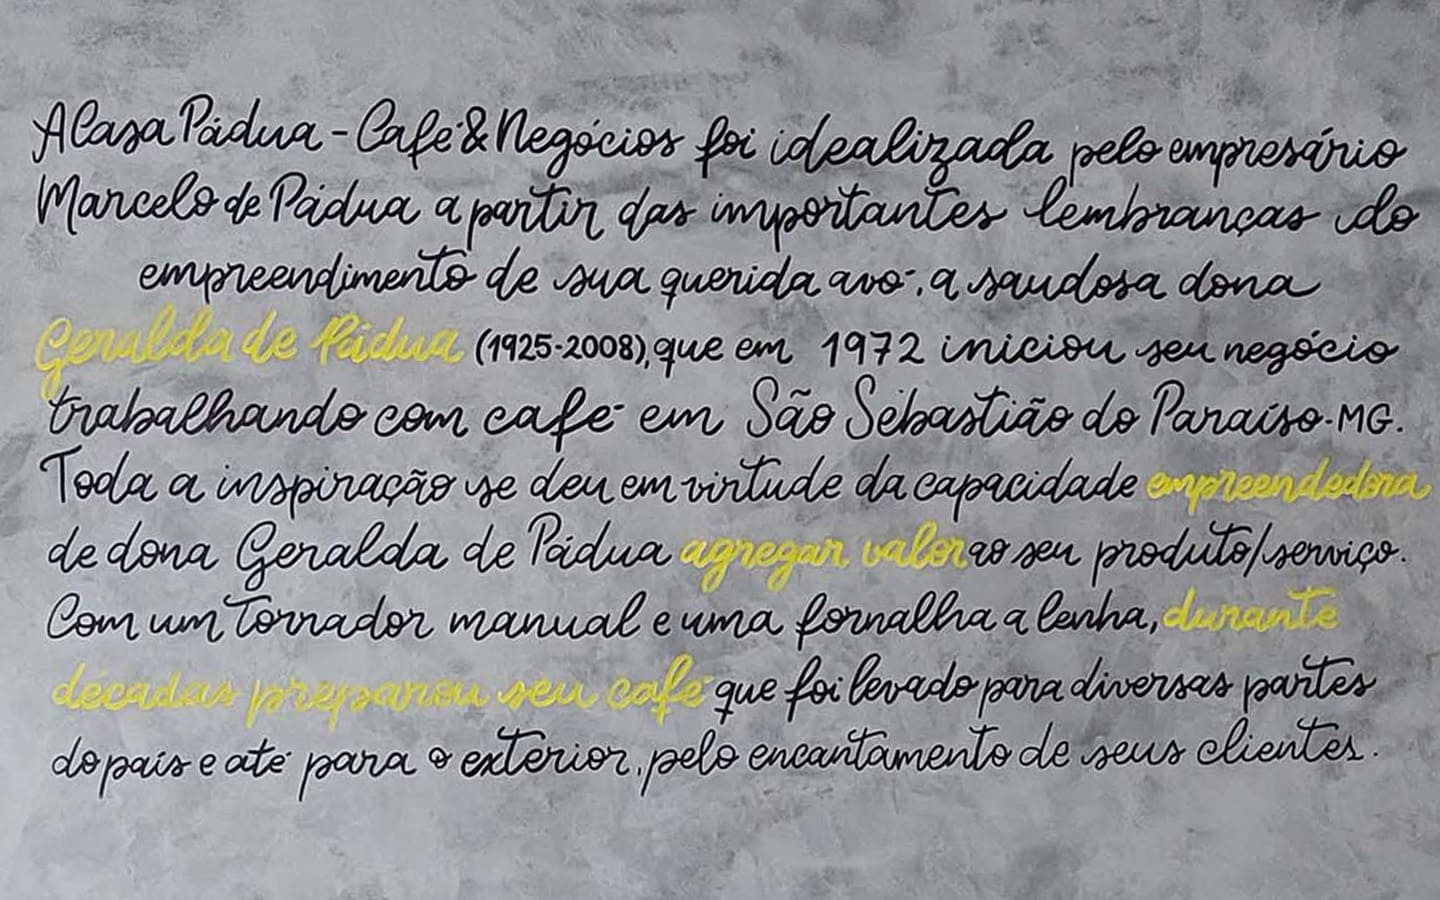 A Casa Pádua - Café & Negócios foi idealizada pelo empresário
Marcelo de Pádua a partir das importantes lembranças do
empreendimento de sua querida avó, a saudosa dona
Geralda de Pádua (1925-2008), que em 1972 iniciou seu negócio
trabalhando com café em São Sebastião do Paraíso-MG.
Toda a inspiração se deu em virtude da capacidade empreendedora
de dona Geralda de Pádua agregar valor ao seu produto/serviço.
Com um tornador manual e uma fornalha a lenha, durante
décadas preparou seu café que foi levado para diversas partes
do país e até para o exterior, pelo encantamento de seus clientes.